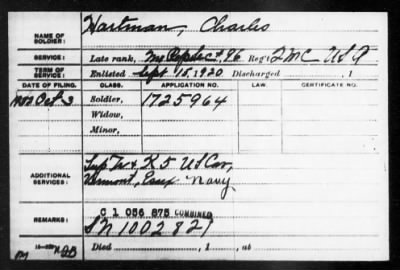 NAME OF SOLDIER: Hartman, Charles
SERVICE: Late rank, Rec Reg't QMC USA
TERM OF SERVICE: Enlisted Sept 15, 1920 Discharged , 1
DATE OF FILING. CLASS. APPLICATION NO. LAW. CERTIFICATE NO.
Oct 3 Soldier, 1725964
Widow,
Minor,
ADDITIONAL SERVICES:
Sup Tr & K 5 US Cav,
Vermont, Essex Navy
REMARKS:
C 1 056 875 COMBINED
SN 1002821
Died , 1 , at